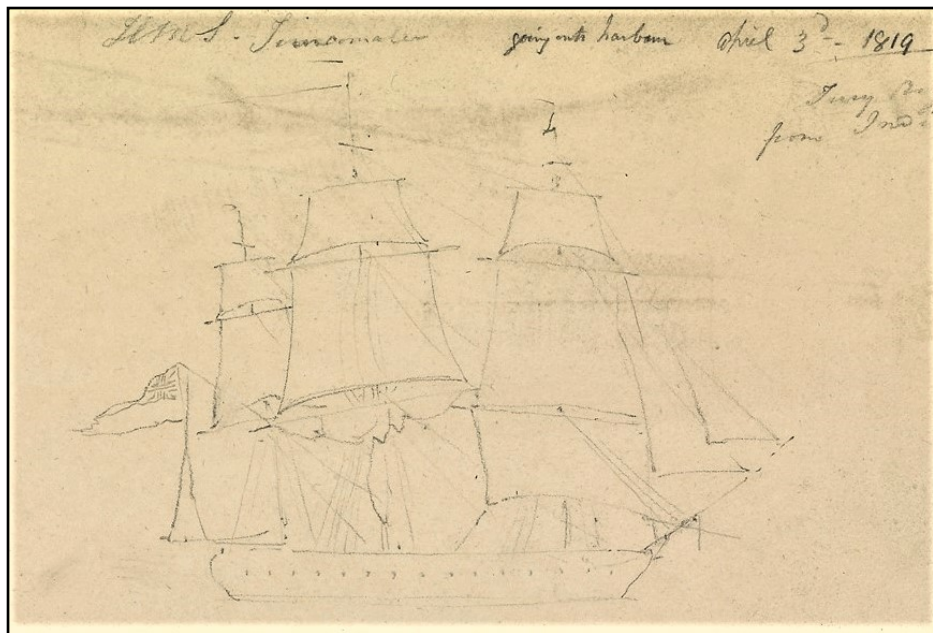 HMS - Trincomalee going into harbour April 3d - 1819
Jury
from Indi